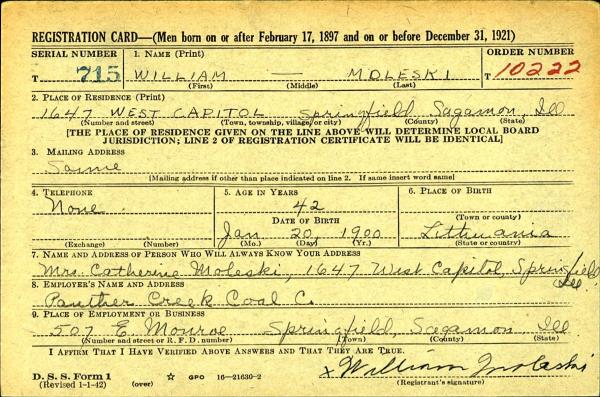 REGISTRATION CARD—(Men born on or after February 17, 1897 and on or before December 31, 1921)
SERIAL NUMBER 1. NAME (Print) ORDER NUMBER
T 715 WILLIAM — MOLESKI T 10222
(First) (Middle) (Last)
2. PLACE OF RESIDENCE (Print)
1647 WEST CAPITOL Springfield, Sagamon, Ill
(Number and street) (Town, township, village, or city) (County) (State)
[THE PLACE OF RESIDENCE GIVEN ON THE LINE ABOVE WILL DETERMINE LOCAL BOARD
JURISDICTION; LINE 2 OF REGISTRATION CERTIFICATE WILL BE IDENTICAL]
3. MAILING ADDRESS
Same
[Mailing address if other than place indicated on line 2. If same insert word same]
4. TELEPHONE 5. AGE IN YEARS 6. PLACE OF BIRTH
None 42
(Town or county)
DATE OF BIRTH
Jan. 20, 1900 Lithuania
(Exchange) (Number) (Mo.) (Day) (Yr.) (State or country)
7. NAME AND ADDRESS OF PERSON WHO WILL ALWAYS KNOW YOUR ADDRESS
Mrs. Catherine Moleski, 1647 West Capitol, Springfield
Ill.
8. EMPLOYER'S NAME AND ADDRESS
Panther Creek Coal C.
9. PLACE OF EMPLOYMENT OR BUSINESS
507 E. Monroe Springfield, Sagamon, Ill.
(Number and street or R. F. D. number) (Town) (County) (State)
I AFFIRM THAT I HAVE VERIFIED ABOVE ANSWERS AND THAT THEY ARE TRUE.
D. S. S. Form 1
(Revised 1-1-42) (over) ☆ GPO 16—21630-2 x William Moleski
(Registrant's signature)